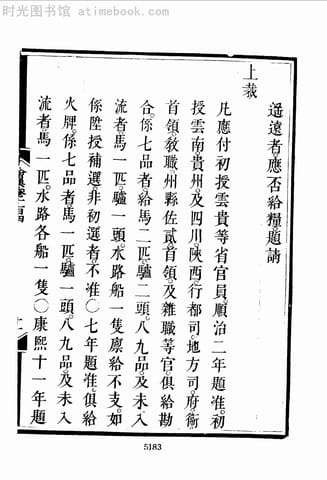 时光图书馆 · atimebook.com
遥遠者應否給糧題請
上裁
凡應付初授雲貴等省官員順治二年題准初
授雲南貴州及四川陝西行都司地方司府衛
首領教職州縣佐貳首領及雜職等官俱給勘
合係七品者給馬二匹驢二頭八九品及未入
流者馬一匹驢一頭水路船一隻廪給不支如
係陞授補選非初選者不准〇七年題准俱給
火牌係七品者馬一匹驢一頭八九品及未入
流者馬一匹水路各船一隻〇康熙十一年題
5183